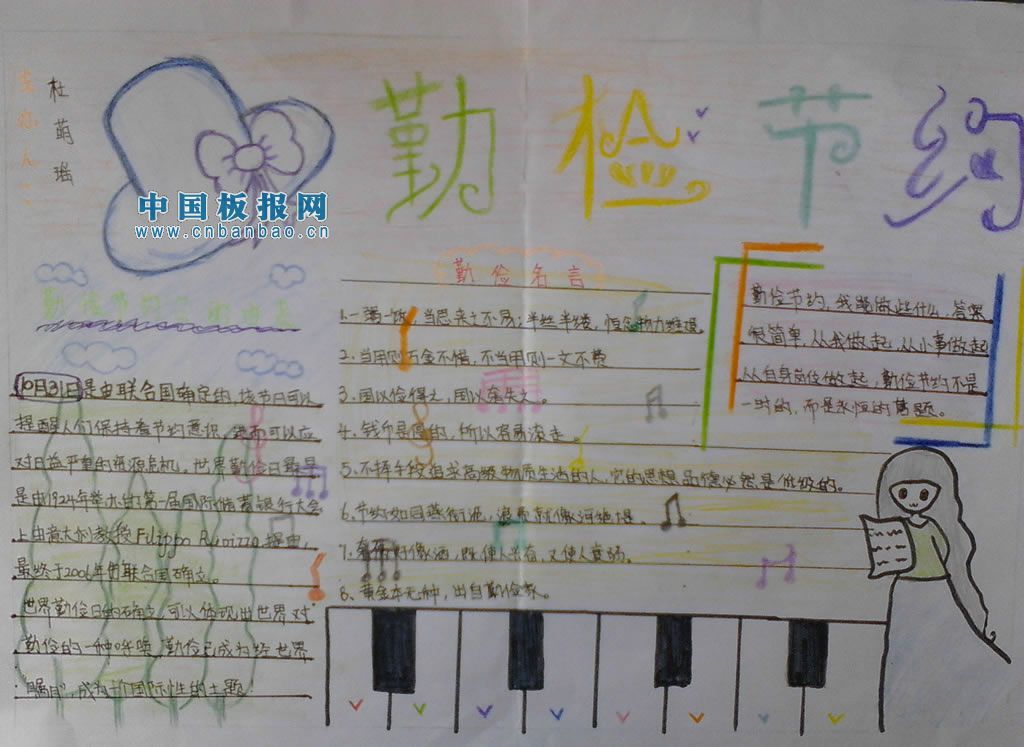 杜萌瑶
勤检节约
中国板报网
www.cnbanbao.cn
勤俭名言
当思来之不易;半丝半缕,恒念物力维艰
2、当用则万金不惜,不当用则一文不费
3、国以俭得之,国以奢失之。
4、钱币是圆的,所以容易滚走。
5、不择手段追求高级物质生活的人,它的思想品德必然是低级的。
6、节约如同燕衔泥,浪费就像河决堤。
7、奢侈好像酒,既使人兴奋,又使人衰弱。
8、黄金本无种,出自勤俭家。
勤俭节约,我能做些什么,答案
很简单,从我做起,从小事做起
从自身岗位做起,勤俭节约不是
一时的,而是永恒的
10月31日是由联合国确定的,该节日可以
提醒人们保持着节约意识,
对日益严重的资源危机,世界勤俭日最早
是由1924年举办的第一届国际储蓄银行大会
上由意大利教授Filippo 提出,
最终于2006年由联合国确立。
世界勤俭日的确立,可以体现出世界对
勤俭的一种呼唤,勤俭已成为经世界
"瞩目",成为一个国际性的主题